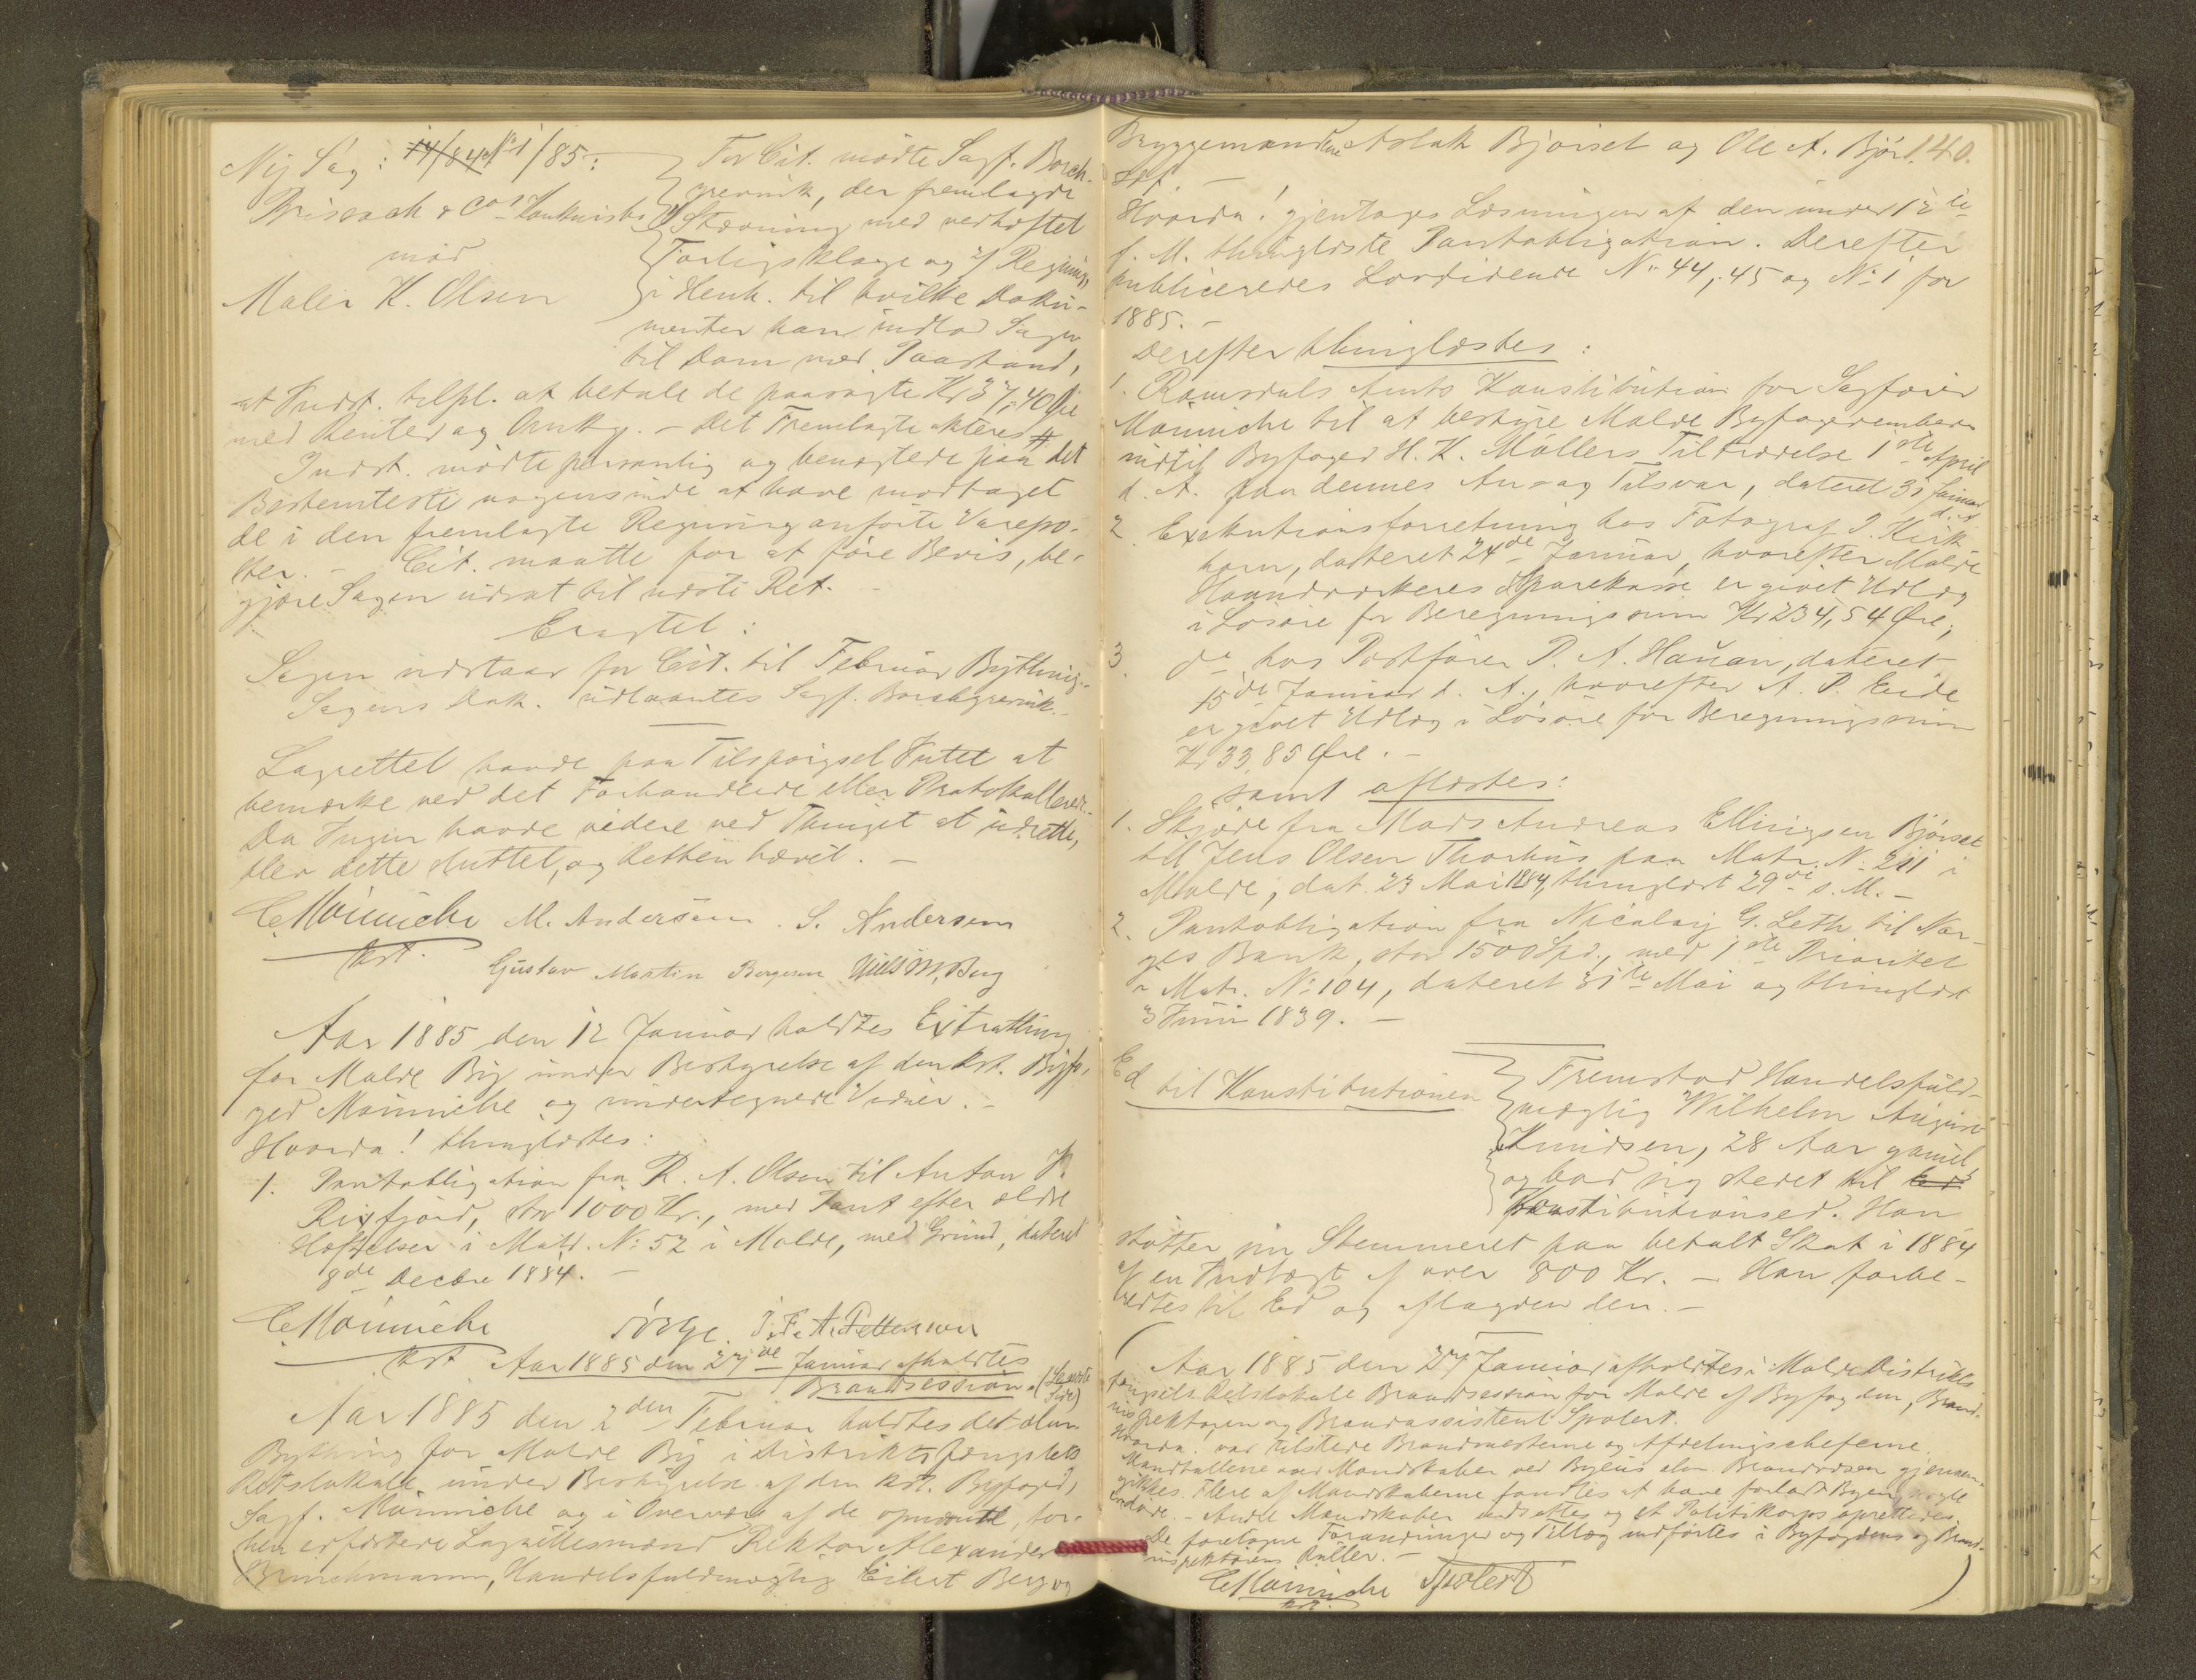 Ny Sag: 14/84 No 1/85:
Brisach & Cos Konkursbo
mod
Maler K. Olsen
For Cit. mödte Sagf. Borch-
grevink, der fremlagde
Stævning med vedhæftet
Forligsklage og Regning,
i Henh. til hvilke Doku-
menter han indlod Sagen
til Dom med Paastand,
at Indst. tilpl. at betale de paasagte Kr 37,40 Øre
med Renter og Omkg. - Det Fremlagte akteres #
Indst. mödte personlig og benegtede paa det
Bestemteste nogensinde at have modtaget
de i den fremlagte Regning anförte Varepo-
ster. - Cit. maatte for at före Bevis, be-
gjære Sagen udsat til næste Ret. -
Eragtet:
Sagen udstaar for Cit. til Februar Bything. -
Sagens Dok. udlaantes Sagf. Borchgrevink. -
Lagrettet havde paa Tilspörgsel Intet at
bemærke ved det Forhandlede eller Protokollerede.
Da Ingen havde videre ved Thinget at udrette,
blev dette sluttet, og Retten hævet. -
C. Mönniche M. Andersen. S. Andersen
kst.
Gustav Martin Borgesen Niels M. Berg
Aar 1885 den 12 Januar holdtes Extrathing
for Molde By under Bestyrelse af den kst. Byfo-
ged Mönniche og undertegnede Vidner. -
Hvorda! thinglæstes:
1. Pantobligation fra R. A. Olsen til Anton K.
Rixfjord, stor 1000 Kr., med Pant efter ældre
Hæftelser i Matr. No 52 i Molde, med Grund, dateret
8de Decbr 1884. -
C. Mönniche J. F. A. Pettersen
kst Aar 1885 den 27de Januar afholdtes
Brandsession. (Se næste Side)
Aar 1885 den 2den Februar holdtes det alm.
Bything for Molde By i Distriktsfængslets
Retslokale under Bestyrelse af den kst. Byfoged,
Sagf. Mönniche og i Overvær af de opnævnte, for-
hen edfæstede Lagrettesmænd Rektor Alexander
Brinchmann, Handelsfuldmægtig Eilert Berg og
Bryggemændene Aslak Bjørset og Ole A. Bjør- 140.
set. -
Hvorda! gjentages Læsningen af den under 12te
f. M. thinglæste Pantobligation. Derefter
publiceredes Lovtidende No 44, 45 og No 1 for
1885. -
Derefter thinglæstes:
1. Romsdals Amts Konstitution for Sagförer
Mönniche til at bestyre Molde Byfogedembede
indtil Byfoged H. K. Möllers Tiltrædelse 1ste April
d. A. paa dennes An- og Tilsvar, dateret 31 Januar
d. A.
2. Exekutionsforretning hos Fotograf P. Kirk
horn, dateret 24de Januar, hvorefter Molde
Haandværkeres Sparekasse er givet Udlæg
i Lösöre for Beregningssum Kr 234,54 Øre;
3. do hos Postförer P. A. Hauan, dateret
15de Januar d. A., hvorefter A. P. Eide
er givet Udlæg i Lösöre for Beregningssum
Kr 33,85 Øre. -
samt aflæstes:
1. Skjöde fra Mads Andreas Ellingsen Björset
til Jens Olsen Thorhus paa Matr. No 211 i
Molde, dat. 23 Mai 1884, thinglæst 29de s. M. -
2. Pantobligation fra Nicolay G. Leth til Nor-
ges Bank, stor 1500 Spd., med 1ste Prioritet
i Matr. No 104, dateret 31te Mai og thinglæst
3 Juni 1839. -
Ed til Konstitutionen
Fremstod Handelsfuld-
mægtig Wilhelm August
Knudsen, 28 Aar gammel
og bad sig stedet til Ed
Konstitutionsed. Han
støtter sin Stemmeret paa betalt Skat i 1884
af en Indtægt af over 800 Kr. - Han forbe-
redtes til Ed og aflagde den. -
(Aar 1885 den 27 Januar afholdtes i Molde Distrikts
fængsels Retslokale Brandsession for Molde af Byfogden, Brand-
inspektøren og Brandassistent Spolert.
Hvorda var tilstede Brandmesterne og Afdelingscheferne.
Mandtallene over Mandskaber ved Byens alm. Brandvæsen gjennem-
gikkes. Flere af Mandskaberne fandtes at have forladt Byen, nogle
vare døde. - Andre Mandskaber indsattes og et Politikorps oprettedes.
De foretagne Forandringer og Tillæg indførtes i Byfogdens og Brand-
inspektørens Ruller. -
C. Mönniche Spolert
kst. )